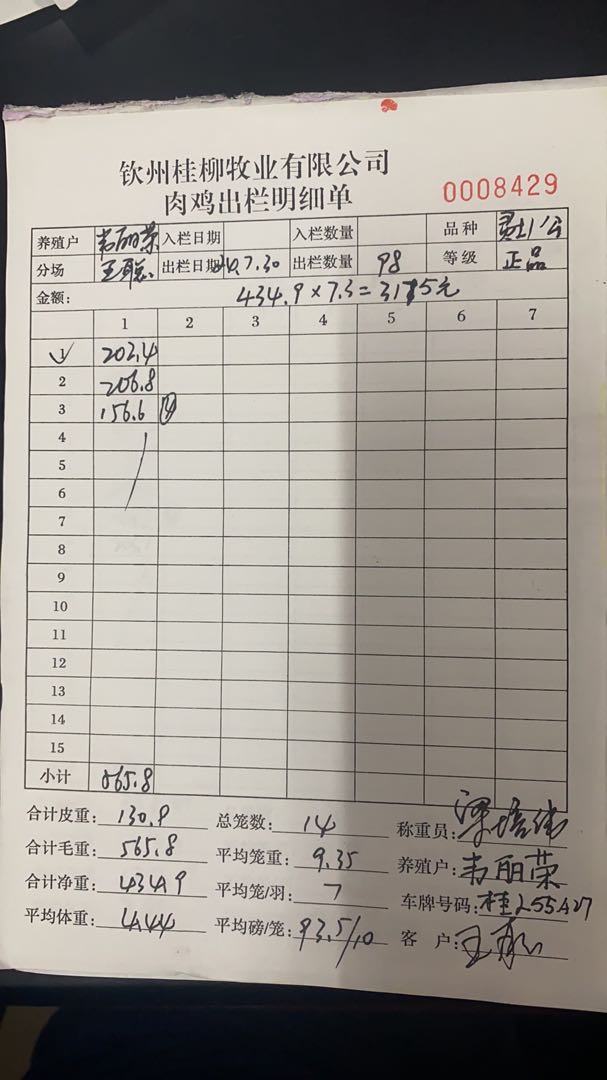 钦州桂柳牧业有限公司
肉鸡出栏明细单
0008429
养殖户 韦丽荣 入栏日期 入栏数量 品种
分场 出栏日期 7.30 出栏数量 98 等级 正品
金额: 434.9×7.3=3175元
1 2 3 4 5 6 7
1 202.4
2 206.8
3 156.6
4
5
6
7
8
9
10
11
12
13
14
15
小计 565.8
合计皮重: 130.9 总笼数: 14 称重员:
合计毛重: 565.8 平均笼重: 9.35 养殖户: 韦丽荣
合计净重: 434.9 平均笼/羽: 7 车牌号码:
平均体重: 4.44 平均磅/笼: 93.5/10 客 户: